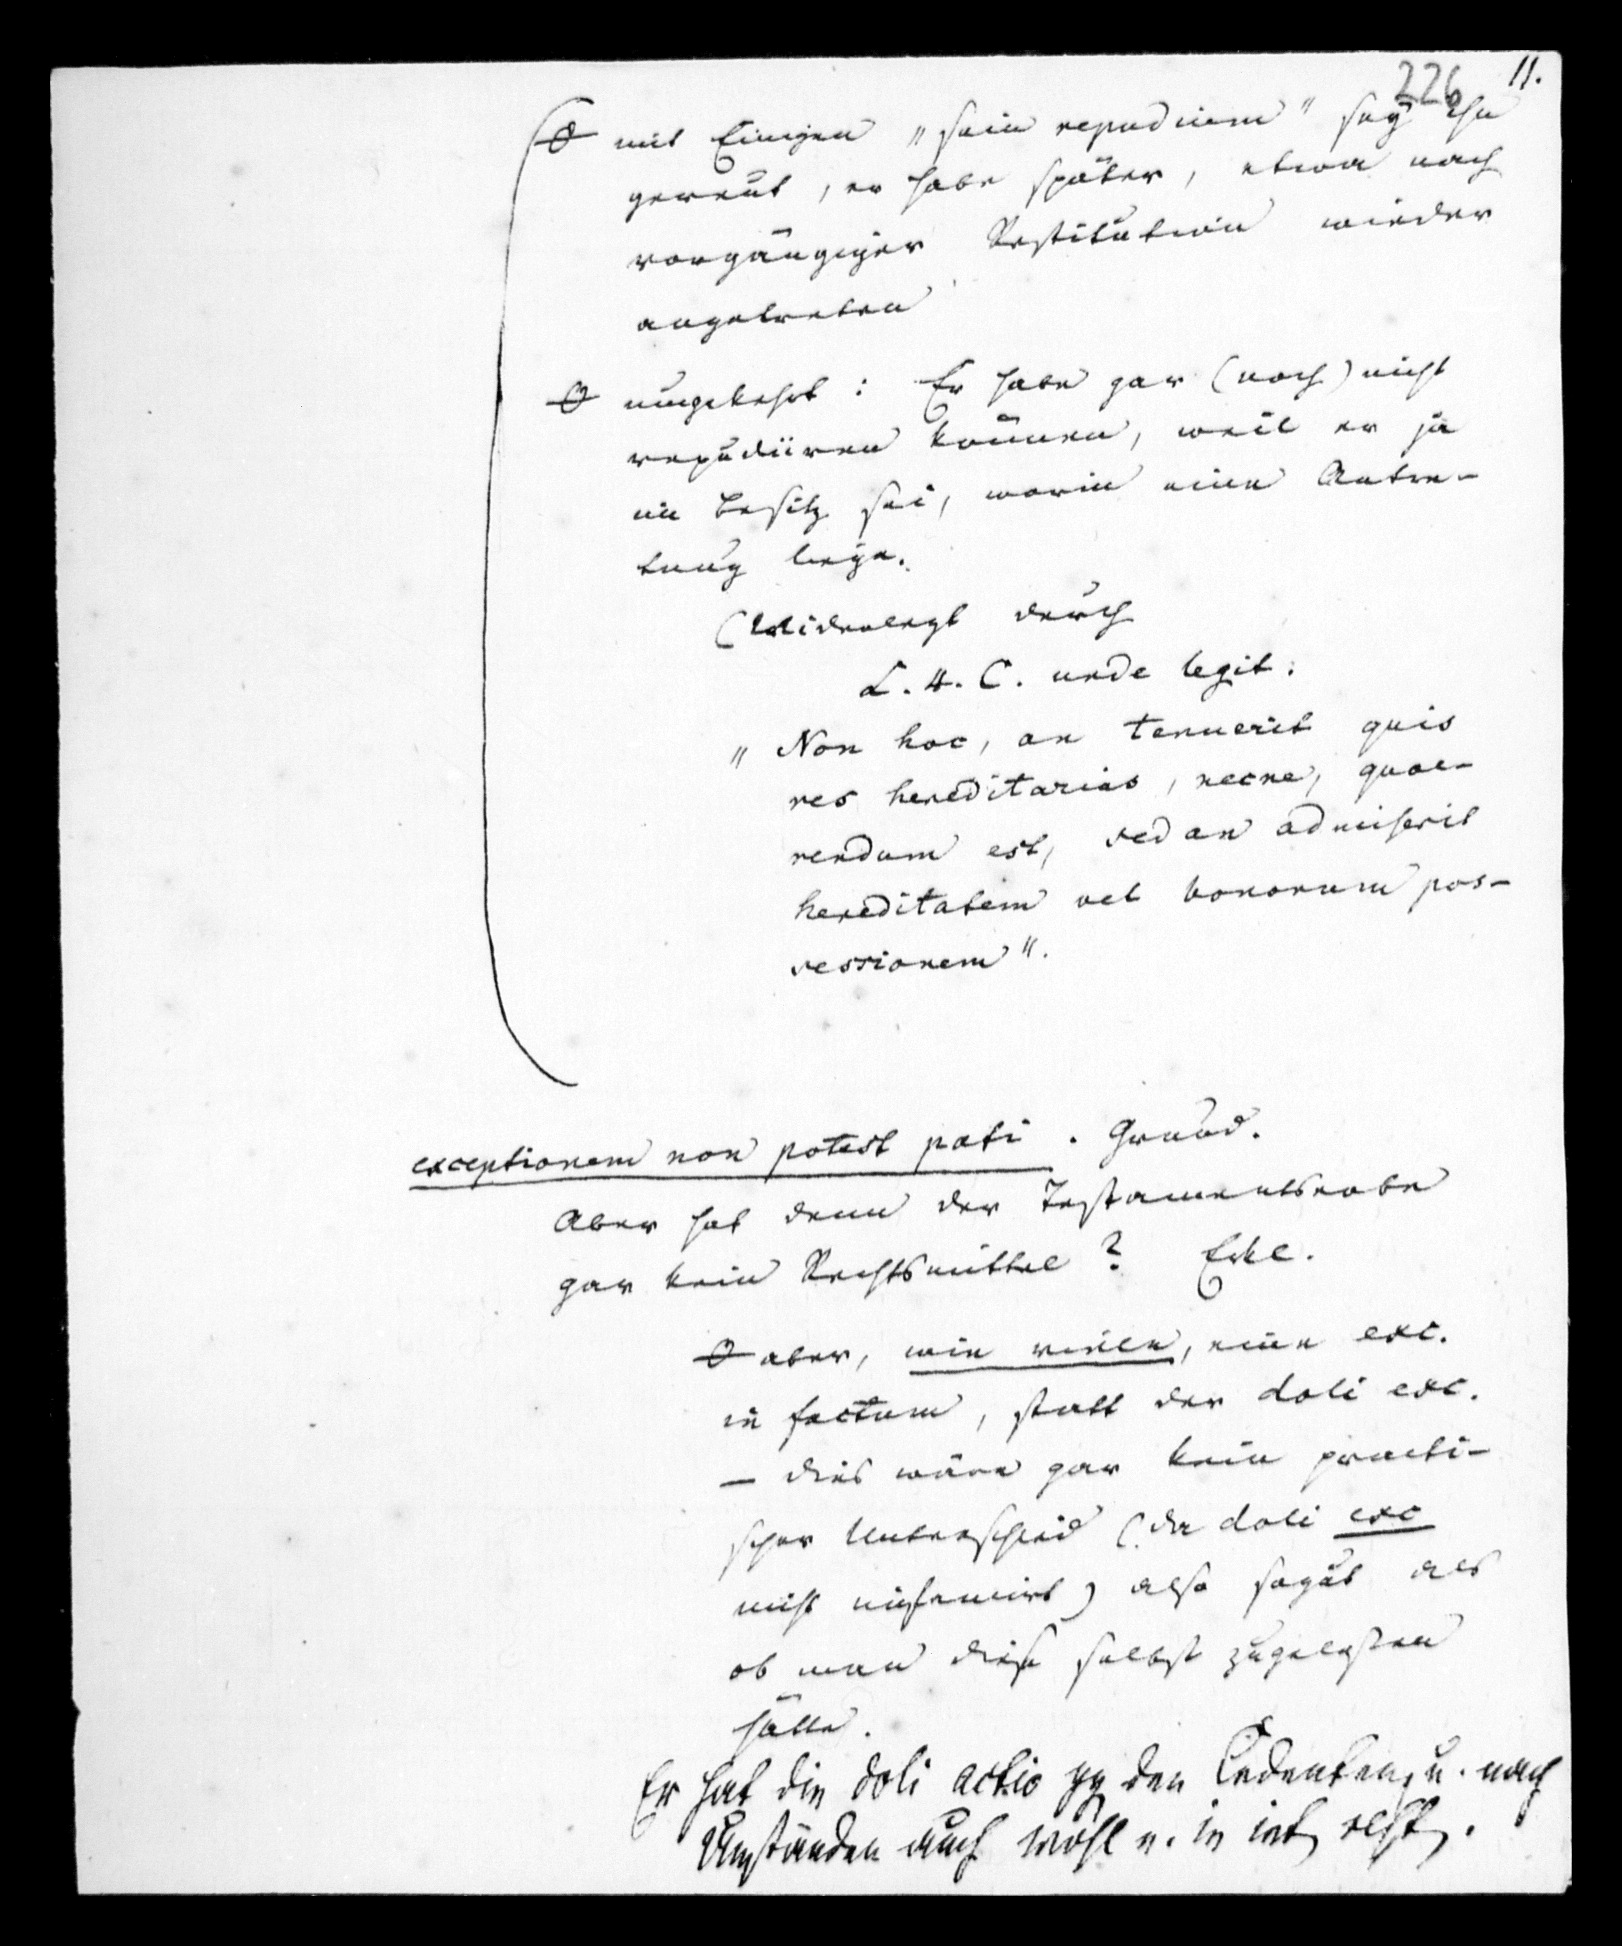 226 11.
mit Einigen „sein repudium" sey ihn
gereut, er habe später, etwa nach
vorgängiger Restitution wieder
angetreten
umgekehrt: Er habe gar (noch) nicht
repudiiren können, weil er ja
im Besitz sei, worin eine Antre-
tung liege.
(Widerlegt durch
L. 4. C. unde legit.
„Non hoc, an tenuerit quis
res hereditarias, necne, quae-
rendum est, sed an admiserit
hereditatem vel bonorum pos-
sessionem".
exceptionem non potest pati. Grund.
Aber hat denn der Testamentserbe
gar kein Rechtsmittel?
aber, wie viele, eine exc.
in factum, statt der doli exc.
– dies wäre gar kein practi-
scher Unterschied (da doli exc
nicht infamirt) also so gut als
ob man diese selbst zugelassen
hätte.
Er hat die doli actio gg den Cedenten, u. nach
Umständen auch wohl r. in int. rest.